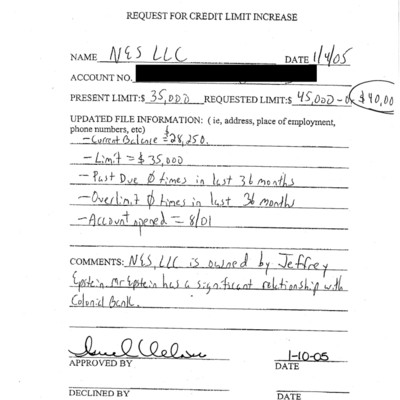 REQUEST FOR CREDIT LIMIT INCREASE
NAME NES LLC DATE 1/4/05
ACCOUNT NO.
PRESENT LIMIT:$ 35,000 REQUESTED LIMIT:$ 45,000 - or $40,00
UPDATED FILE INFORMATION: ( ie, address, place of employment,
phone numbers, etc)
- Current Balance = $28,250.
- Limit = $35,000
- Past Due Ø times in last 36 months
- Overlimit Ø times in last 36 months
- Account opened = 8/01
COMMENTS: NES, LLC is owned by Jeffrey
Epstein. Mr Epstein has a significant relationship with
Colonial Bank.
1-10-05
APPROVED BY DATE
DECLINED BY DATE